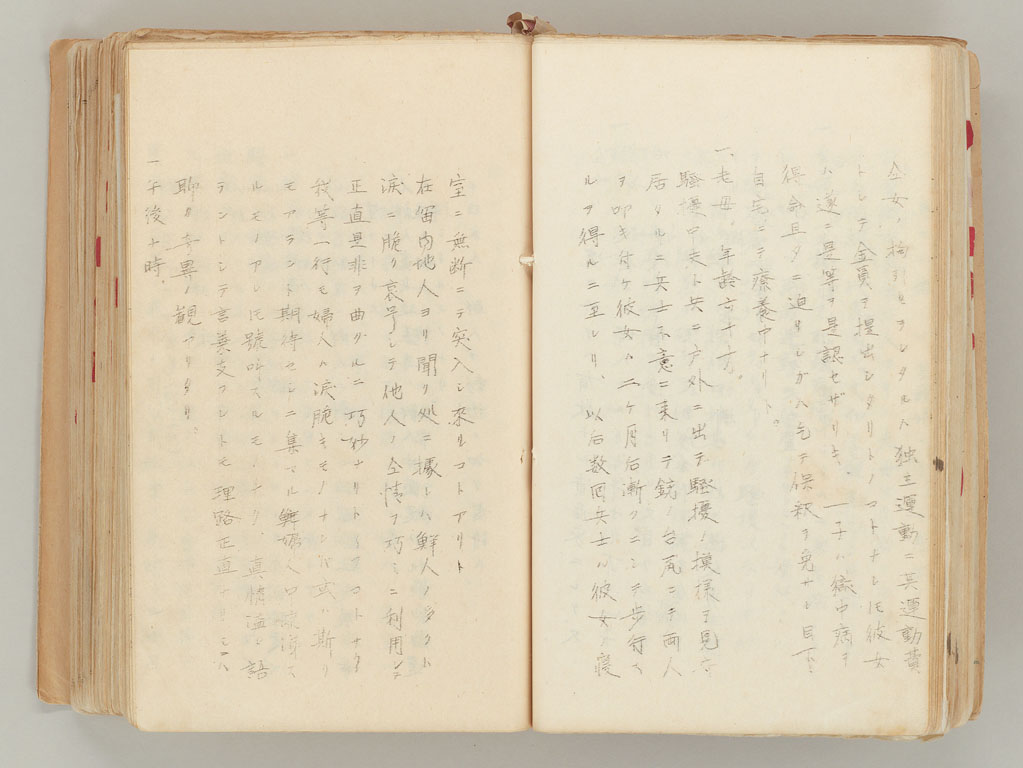 仝女ノ拘引セラレタルハ独立運動ニ其運動費
トシテ金員ヲ提出シタリトノコトナレ圧彼女
ハ遂ニ是等ヲ是認セザリキ、一子ハ獄中病ヲ
得命旦夕ニ迫リシガハ乞テ保釈ヲ免サレ目下
自宅ニテ療養中ナリト。
一、老母、年齢六十才。
騒擾中夫ト共ニ戸外ニ出テ騒擾ノ模様ヲ見
居リルニ兵士不意ニ来リテ銃ノ台尻ニテ両人
ヲ叩キ付ケ彼女ハ二ケ月后漸クニシテ歩行ス
ルヲ得ルニ至レリ、以后数回兵士ハ彼女ノ寝
室ニ無断ニテ突入シ来ルコトアリト
在留内地人ヨリ聞ク処ニ據レハ鮮人ノ多クハ
涙ニ脆ク哀号シテ他人ノ仝情ヲ巧ミニ利用シ
正直是非ヲ曲グルニ巧妙ナリト
我等一行モ婦人ハ涙脆キモノナレバ或ハ斯
モアラント期待セシニ集マル鮮婦人
ルモノアレ圧號叫スルモノナク、真情溢レ語
テントシテ言葉支フレトモ理路正直
聊カ奇異ノ観アリタリ、
一午後十時、